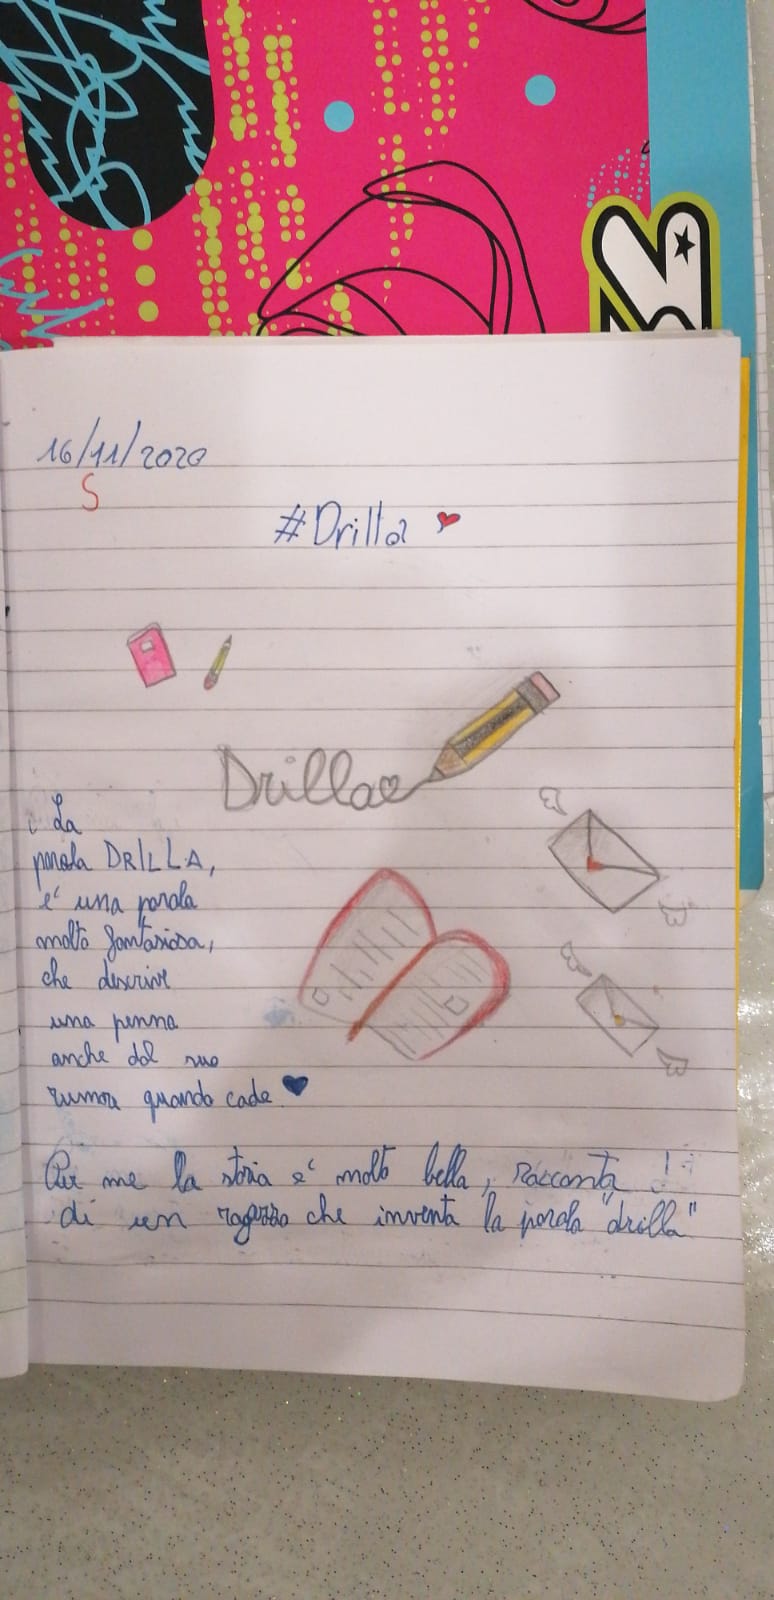 16/11/2020
S
#Drilla
Drilla
La
parola DRILLA,
e' una parola
molto fantasiosa,
che descrive
una penna
anche dal suo
rumore quando cade
Per me la storia e' molto bella, racconta
di un ragazzo che inventa la parola "drilla"